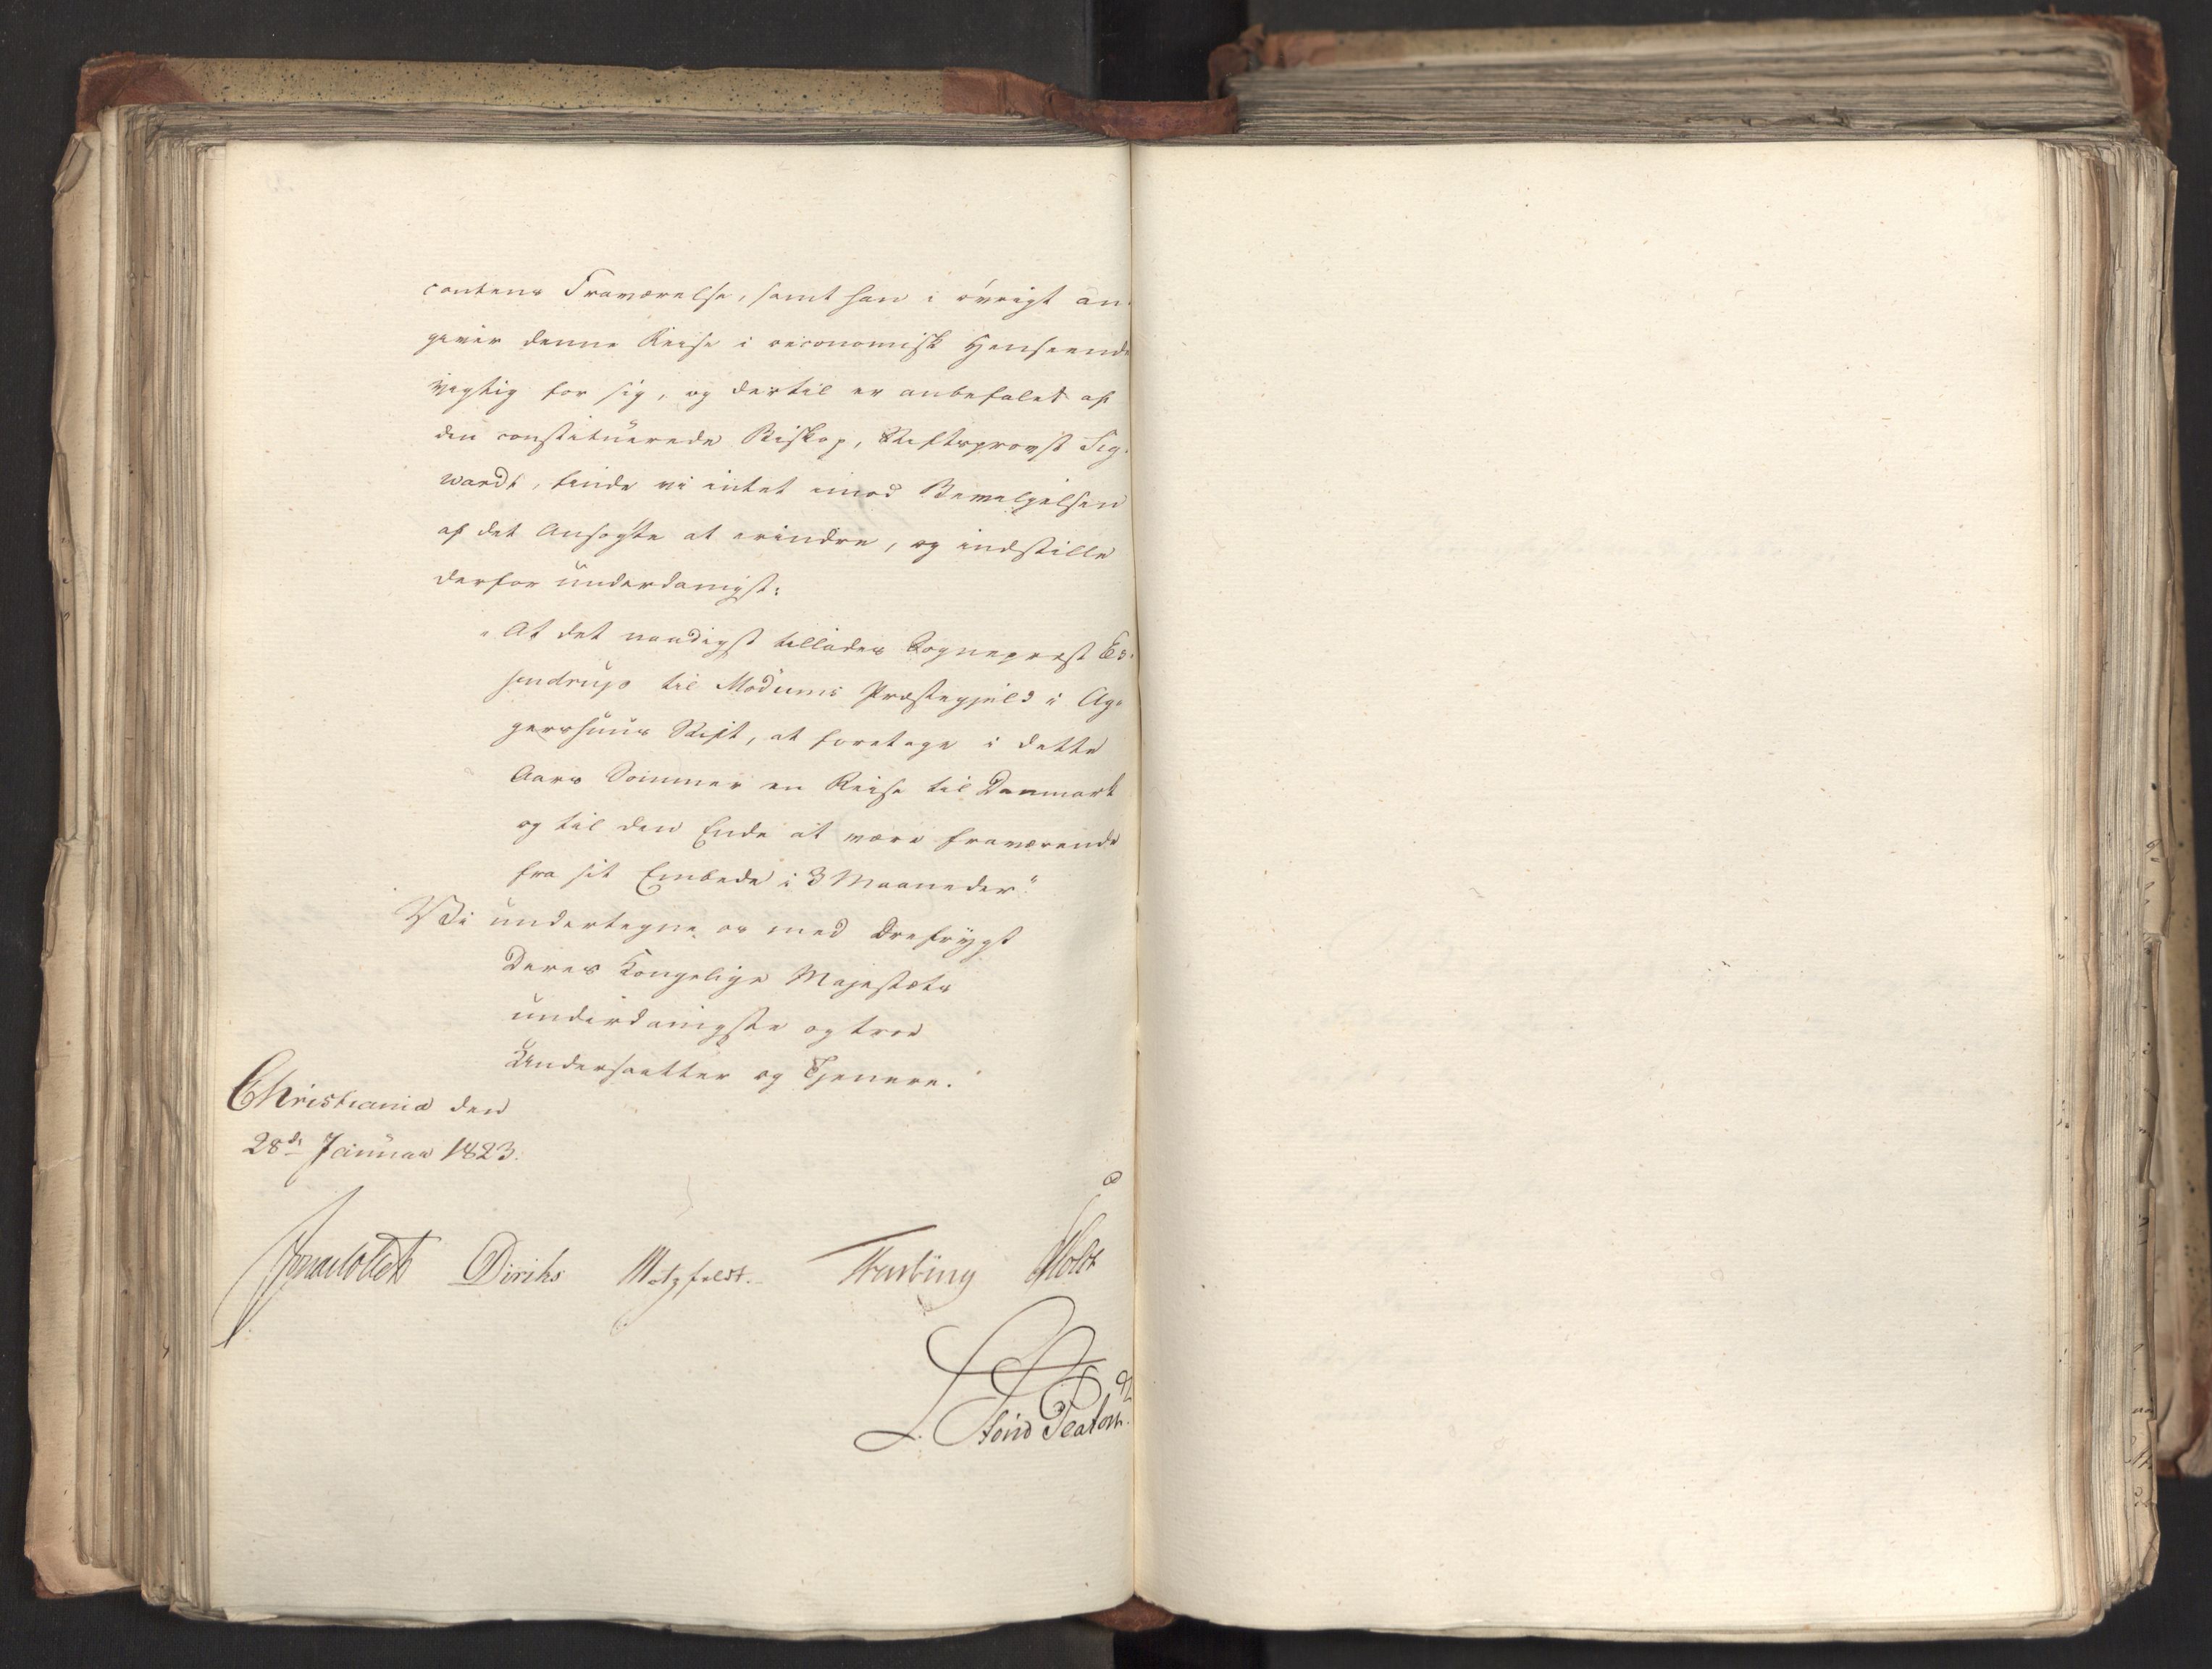 cantens Fraværelse, samt han i øvrigt an-
giver denne Reise i oeconomisk Henseende
vigtig for sig, og dertil er anbefalet af
den constituerede Biskop, Stiftsprovst Sig-
wardt, finde vi intet imod Bevilgelsen
af det Ansøgte at erindre, og indstille
derfor underdanigst:
"At det naadigst tillades Sogneprest Es-
sendrup til Modums Præstegjeld i Ag-
gershuus Stift, at foretage i dette
Aars Sommer en Reise til Danmark
og til den Ende at være fraværende
fra sit Embede i 3 Maaneder."
Vi undertegne os med Ærefrygt
Deres Kongelige Majestæts
underdanigste og troe
Undersaatter og Tjenere.
Christiania den
28de Januar 1823.
Diriks Motzfeldt. Treschow Holst